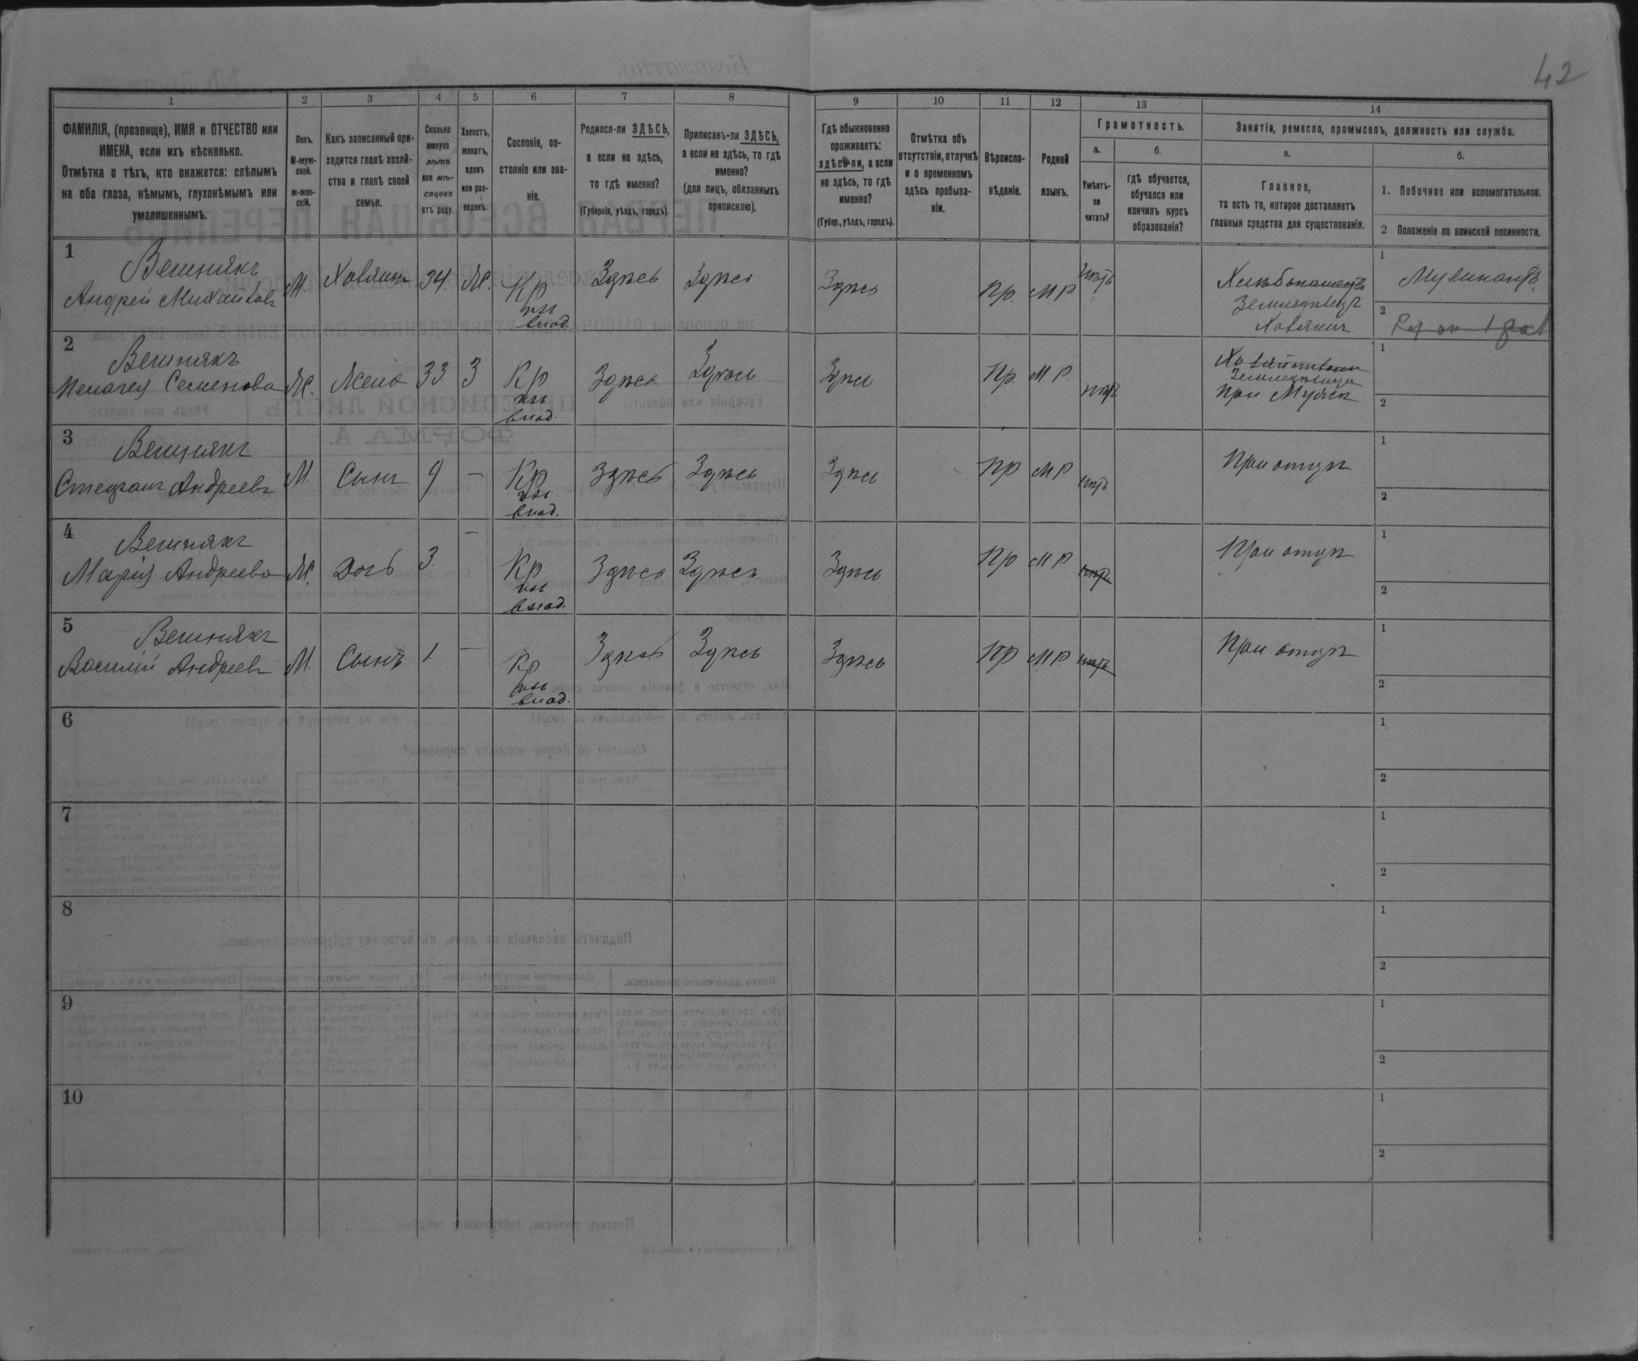 42
1
2
3
4
5
6
7
8
9
10
11
12
13
14
ФАМИЛІЯ, (прозвище), ИМЯ и ОТЧЕСТВО или
ИМЕНА, если ихъ нѣсколько.
Отмѣтка о тѣхъ, кто окажется: слѣпымъ
на оба глаза, нѣмымъ, глухонѣмымъ или
умалишеннымъ.
Полъ.
М-муж-
ской.
ж-жен-
скій.
Какъ записанный при-
ходится главѣ хозяй-
ства и главѣ своей
семьи.
Сколько
минуло
лѣтъ
или мѣ-
сяцевъ
отъ роду.
Холостъ,
женатъ,
вдовъ
или раз-
веденъ.
Сословіе, со-
стояніе или зва-
ніе.
Родился-ли ЗДѢСЬ,
а если не здѣсь,
то гдѣ именно?
(Губернія, уѣздъ, городъ).
Приписанъ-ли ЗДѢСЬ,
а если не здѣсь, то гдѣ
именно?
(для лицъ, обязанныхъ
припискою).
Гдѣ обыкновенно
проживаетъ:
здѣсь-ли, а если
не здѣсь, то гдѣ
именно?
(Губер., уѣздъ, городъ).
Отмѣтка объ
отсутствіи, отлучкѣ
и о временномъ
здѣсь пребыва-
ніи.
Вѣроиспо-
вѣданіе.
Родной
языкъ.
Грамотность.
а.
Умѣетъ-
ли
читать?
б.
Гдѣ обучается,
обучался или
кончилъ курсъ
образованія?
Занятіе, ремесло, промыселъ, должность или служба.
а.
Главное,
то есть то, которое доставляетъ
главныя средства для существованія.
б.
1. Побочное или вспомогательное.
2 Положеніе по воинской повинности.
1
Вешнякъ
Андрей Михайловъ
М.
Хозяинъ
34
Ж.
Кр
изъ
влад.
Здѣсь
Здѣсь
Здѣсь
Пр.
МР
нѣтъ
Хлѣбопашество
Земледѣлецъ
Хозяинъ
1
Музикантъ
2
2
Вешнякъ
Пелагея Семенова
Ж.
Жена
33
З
Кр
изъ
влад.
Здѣсь
Здѣсь
Здѣсь
Пр.
МР
нѣтъ
Земледѣлица
При Мужѣ
1
2
3
Вешнякъ
Стефанъ Андреевъ
М.
Сынъ
9
—
Кр
изъ
влад.
Здѣсь
Здѣсь
Здѣсь
Пр
МР
нѣтъ
При отцѣ
1
2
4
Вешнякъ
Марія Андреева
Ж.
Дочь
3.
—
Кр
изъ
влад.
Здѣсь
Здѣсь
Здѣсь
Пр
МР
нѣтъ
При отцѣ
1
2
5
Вешнякъ
Василій Андреевъ
М.
Сынъ
1
—
Кр
изъ
влад.
Здѣсь
Здѣсь
Здѣсь
Пр
МР
нѣтъ
При отцѣ
1
2
6
1
2
7
1
2
8
1
2
9
1
2
10
1
2